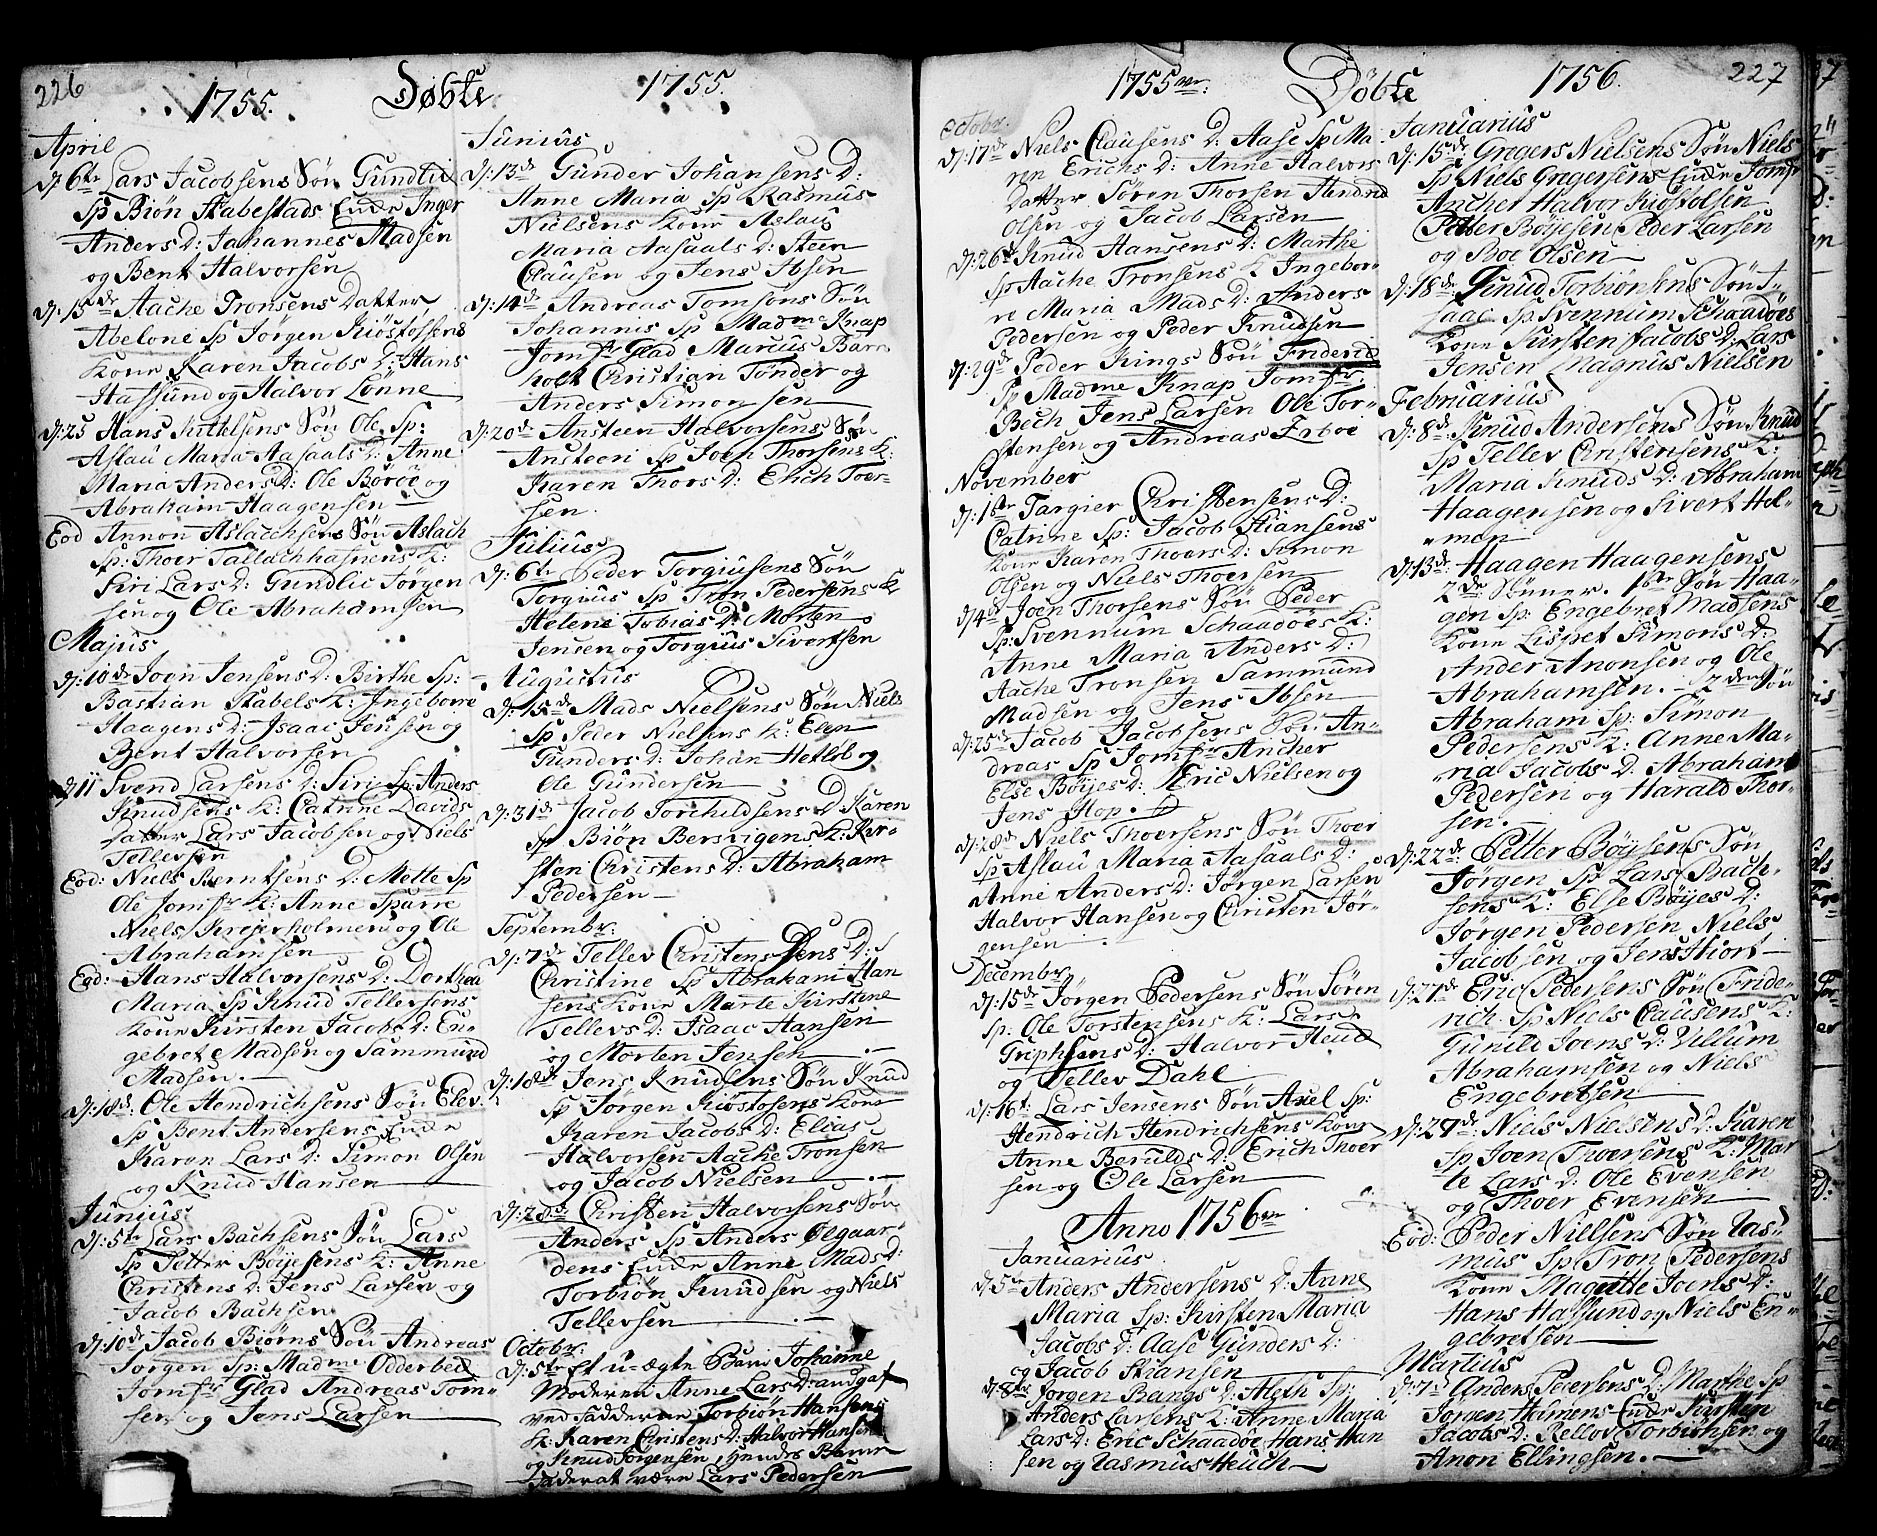 226
1755. Døbte 1755.
April
D: 6te Lars Jacobsens Søn Gundlix
Sp Biøn Stabestads Encke Inger
Anders D: Johannes Madsen
og Bent Halvorsen
D: 13de Aache Tronsens Datter
Abelone Sp Jørgen Kiøstofsens
Kone Karen Jacobs D: Hans
Hassund og Halvor Lønne
D: 25 Hans Kittelsens Søn Ole Sp:
Aslau Maria Aasaals D: Anne
Maria Anders D: Ole Børøe og
Abraham Haagensen
Eod Annon Aslacchsens Søn Aslach
Sp: Thoer Tallachhafnens K:
Siri Lars D: Gundlic Jørgen
sen og Ole Abrahamsen
Majus
D: 10de Joen Jensens D: Birthe Sp:
Bastian Stabels K: Ingeborre
Haagens D: Isaac Jensen og
Bent Halvorsen
D: 11 Svend Larsens D: Siri Sp: Anders
Knudsens K: Catrine Davids
datter Lars Jacobsen og Niels
Tellefsen
Eod: Niels Berntsens D: Mette Sp
Ole Jomfr K: Anne Sparre
Niels Krejerholmen og Ole
Abrahamsen
Eod: Hans Halvorsens D: Dorthea
Maria Sp Knud Tellefsens
Kone Kirsten Jacobs D: En-
gebret Madsen og Sammund
Madsen.
D: 18de Ole Hendrichsens Søn Elev.
Sp Bent Andersens Encke
Karen Lars D: Simon Olsen
og Knud Hansen
Junius
D: 5te Lars Bachsens Søn Lars
Sp Petter Bøyesens K: Anne
Christens D: Jens Larsen og
Jacob Bachsen
D: 10de Jacob Biørns Søn Andreas
Jørgen Sp: Madme Odderbed
Jomfr Glad Andreas Tom-
sen og Jens Larsen
Junius
D: 13de Gunder Johansens D:
Anne Maria Sp Rasmus
Nielsens Kone Aslau
Maria Aasaals D: Steen
Clausen og Jens Ibsen
D: 14de Andreas Tomsons Søn
Johannis Sp Madme Knap
Jomfr Glad Marcus Bære
holt Christian Tønder og
Anders Simonsen
D: 20de Ansteen Halvorsens Søn
Ansteen Sp Joen Thorsens K:
Karen Thors D: Erich Toer-
sen.
Julius
D: 6te Peder Torgiusens Søn
Torgius Sp Tron Pedersens K
Helene Tobias D: Morten
Jensen og Torgius Sivertsen
Augustus
D: 15de Mads Nielsens Søn Niels
Sp Peder Nielsens K: Elen
Gunders D: Johan Hetlob og
Ole Gundersen
D: 31de Jacob Torchildsens D Karen
Sp Biøn Bersvigens K: Ker-
sten Christens D: Abraham
Pedersen
Septembr:
D: 7de Tellev Christensens D:
Christine Sp Abraham Han
sens Kone Marte Kirstine
Tellevs D: Isaac Hansen
og Morten Jensen
D: 18de Jens Knudsens Søn Knud
Sp Jørgen Kiøstofsens Kone
Karen Jacobs D: Elias
Halvorsen Aache Tronsen
og Jacob Nielsen
D: 28de Christen Halvorsens Søn
Anders Sp Anders Ølgaar-
dens Encke Anne Mads D:
Torbiøn Knudsen og Niels
Tellevsen
Octobr:
D: 5te Et u-ægte Barn Johanne
Moderen Anne Lars D: audgaf
ved Fadderne Torbiøn Hansens
K: Karen Christens D: Halvor Hansen
og Knud Jørgensen, Hendes Barne
fader at være Lars Pedersen
1755ve Døbte 1756. 227
Octobr.
D: 17de Niels Clausens D: Aase Sp Ma-
ren Erichs D: Anne Halvors
Datter Søren Thorsen Hendrid
Olsen og Jacob Larsen
D: 26de Knud Hansens D: Marthe
Sp Aache Tronsens K Ingebor-
re Maria Mads D: Anders
Pedersen og Peder Knudsen
D: 29de Peder Kings Søn Friderid
Sp Madme Knap Jomfr.
Bech Jens Larsen Ole Tor-
stensen og Andreas Erboe
November
D: 1ste Targier Christensens D:
Catrine Sp: Jacob Stiansens
Kone Karen Thoers D: Simon
Olsen og Niels Thoersen
D: 4de Joen Thorsens Søn Peder
Sp: Svennum Schaadøes K:
Anne Maria Anders D:
Aache Tronsen Sammund
Madsen og Jens Ibsen
D: 25de Jacob Jacobsens Søn An-
dreas Sp Jomfr Ancher
Else Bøyes D: Eric Nielsen og
Jens Hop.
D: 28de Niels Thoersens Søn Thoer
Sp Aslau Maria Aasaals D:
Anne Anders D: Jørgen Larsen
Halvor Hansen og Christen Jør-
gensen
Decembr
D: 15de Jørgen Pedersens Søn Søren
Sp: Ole Torstensens K: Lars
Griphsens D: Halvor Heud
og Tellev Dahl
D: 16t: Lars Jensens Søn Axel Sp:
Hendrich Hendrichsens Kone
Anne Berulds D: Erich Thoer
sen og Ole Larsen
Anno 1756ve
Januarius
D: 5te Anders Andersens D: Anne
Maria Sp: Kirsten Maria
Jacobs D: Aase Gunders D:
og Jacob Stiansen
D: 8de Jørgen Bangs D: Aleth Sp:
Anders Larsens K: Anne Maria
Lars D: Eric Schaadøe Hans Han
sen og Rasmus Heuch
Januarius
D: 15de Gregers Nielsens Søn Niels
Sp Niels Gregersens Encke Jomfr
Ancher Halvor Kiøstolsen
Petter Bøyesen Peder Larsen
og Boe Olsen
D: 18de: Knud Torbiønsens Søn I-
saac Sp Svennum Schaadøes
Kone Kirsten Jacobs D: Lars
Jensen Magnus Nielsen
Februarius
D: 8de Knud Andersens Søn Knud
Sp Tellev Christensens K:
Maria Knuds D: Abraham
Haagensen og Sivert Hol-
men
D: 13de: Haagen Haagensens
2de Sønner. 1ste Søn Haa-
gen Sp: Engebret Madsens
Kone Lisbet Simons D:
Ander Anonsen og Ole
Abrahamsen. - 2den Søn
Abraham Sp: Simon
Pedersens K: Anne Ma-
ria Jacobs D: Abraham
Pedersen og Harald Thor-
sen.
D: 22de: Petter Bøyesens Søn
Jørgen Sp Lars Bach-
sens K: Else Bøyes D:
Jørgen Pedersen Niels
Jacobsen og Jens Hiort
D: 27de Eric Pedersens Søn Fride-
rich Sp Niels Clausens K:
Gunild Joens D: Villum
Abrahamsen og Niels
Engebretsen
D: 27de: Niels Nielsens D: Karen
Sp Joen Thoersens K: Mar
te Lars D: Ole Evensen
og Thoer Evensen
Eod: Peder Nielsens Søn Ras-
mus Sp Tron Pedersens
Kone Magnille Joens D:
Hans Hassund og Niels En-
gebretsen
Martius
D: 7de Anders Pedersens D: Marthe Sp
Jørgen Holmens Encke Kirsten
Jacobs D: Rellov Torbiønsen og
Anon Ellingsen.